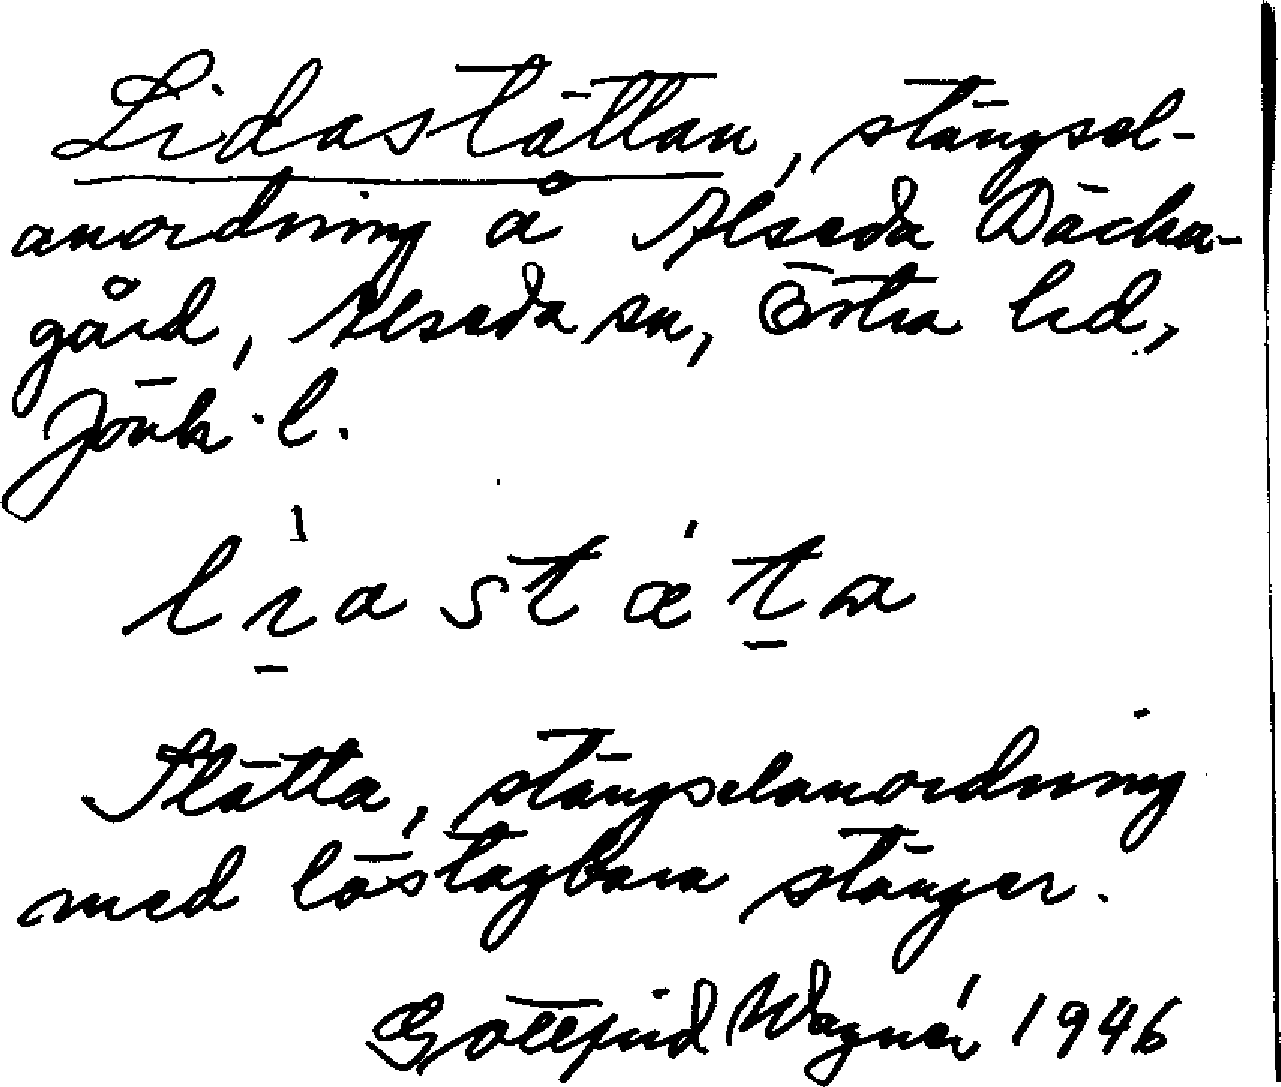 Lidastättan, stängsel-
anordning å Alseda Däcka-
gård, Alseda sn, Östra hd,
Jönk. l.
lıastæta
Stätta, stängselanordning
med löstagbara stänger.
Gottfrid Wagnér 1946